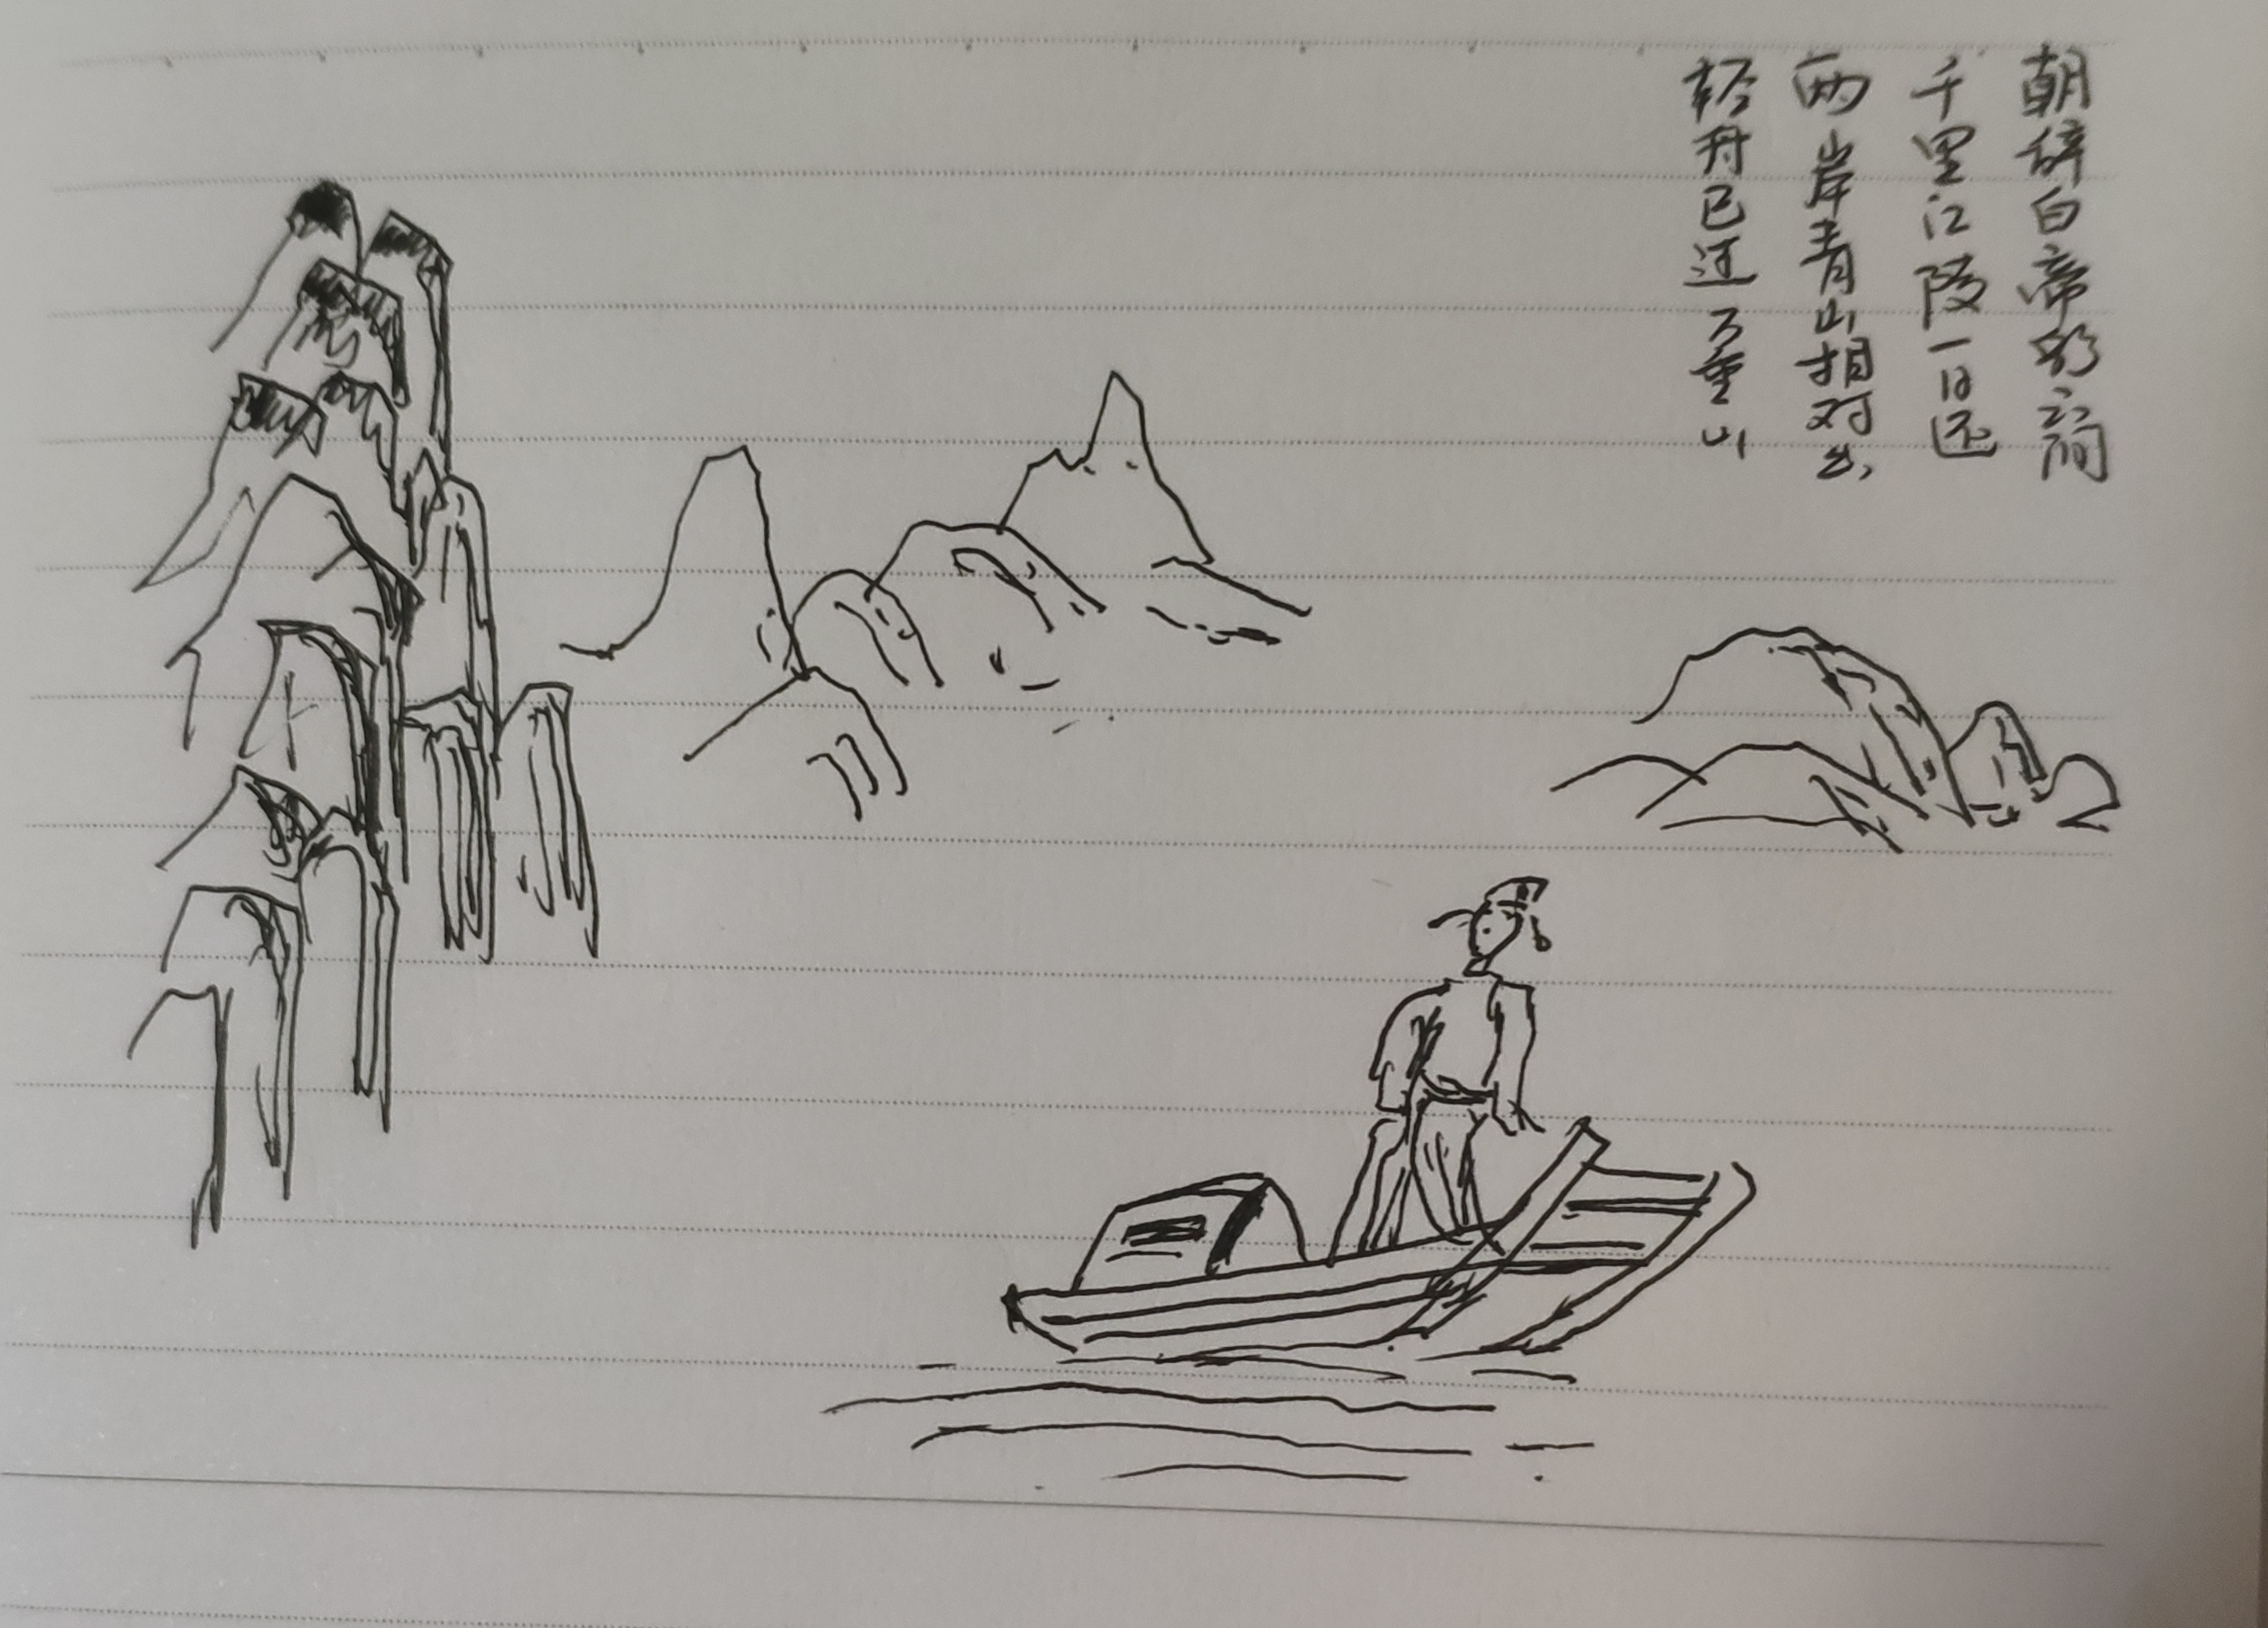 朝辞白帝彩云间
千里江陵一日还
两岸青山相对出
轻舟已过万重山